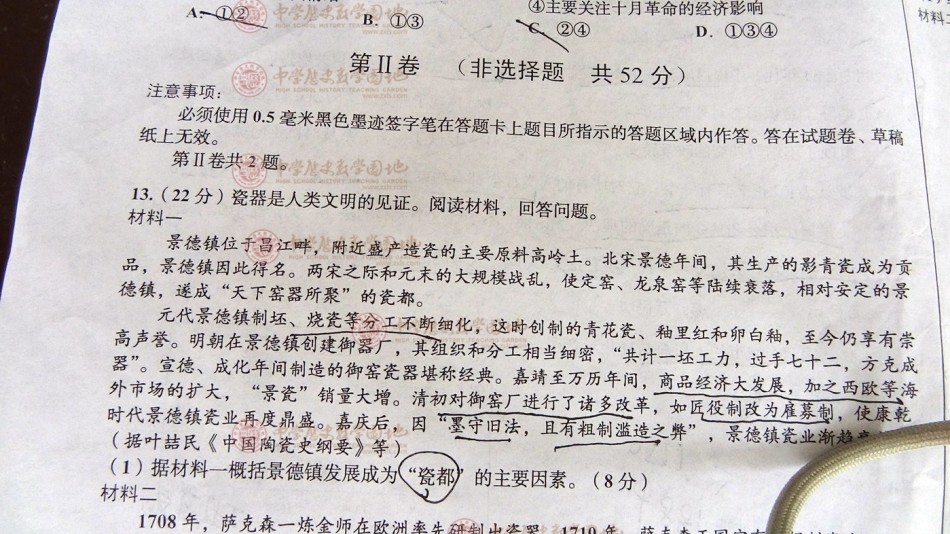 ④主要关注十月革命的经济影响
A. ①② B. ①③ C. ②④ D. ①③④
材料二
第Ⅱ卷 （非选择题 共 52 分）
注意事项：
必须使用 0.5 毫米黑色墨迹签字笔在答题卡上题目所指示的答题区域内作答。答在试题卷、草稿
纸上无效。
第Ⅱ卷共 2 题。
13.（22 分）瓷器是人类文明的见证。阅读材料，回答问题。
材料一
景德镇位于昌江畔，附近盛产造瓷的主要原料高岭土。北宋景德年间，其生产的影青瓷成为贡
品，景德镇因此得名。两宋之际和元末的大规模战乱，使定窑、龙泉窑等陆续衰落，相对安定的景
德镇，遂成“天下窑器所聚”的瓷都。
元代景德镇制坯、烧瓷等分工不断细化，这时创制的青花瓷、釉里红和卵白釉，至今仍享有崇
高声誉。明朝在景德镇创建御器厂，其组织和分工相当细密，“共计一坯工力，过手七十二，方克成
器”。宣德、成化年间制造的御窑瓷器堪称经典。嘉靖至万历年间，商品经济大发展，加之西欧等海
外市场的扩大，“景瓷”销量大增。清初对御窑厂进行了诸多改革，如匠役制改为雇募制，使康乾
时代景德镇瓷业再度鼎盛。嘉庆后，因“墨守旧法，且有粗制滥造之弊”，景德镇瓷业渐趋
（据叶喆民《中国陶瓷史纲要》等）
（1）据材料一概括景德镇发展成为“瓷都”的主要因素。（8 分）
材料二
1708 年，萨克森一炼金师在欧洲率先研制出瓷器。1710 年，萨克森王国